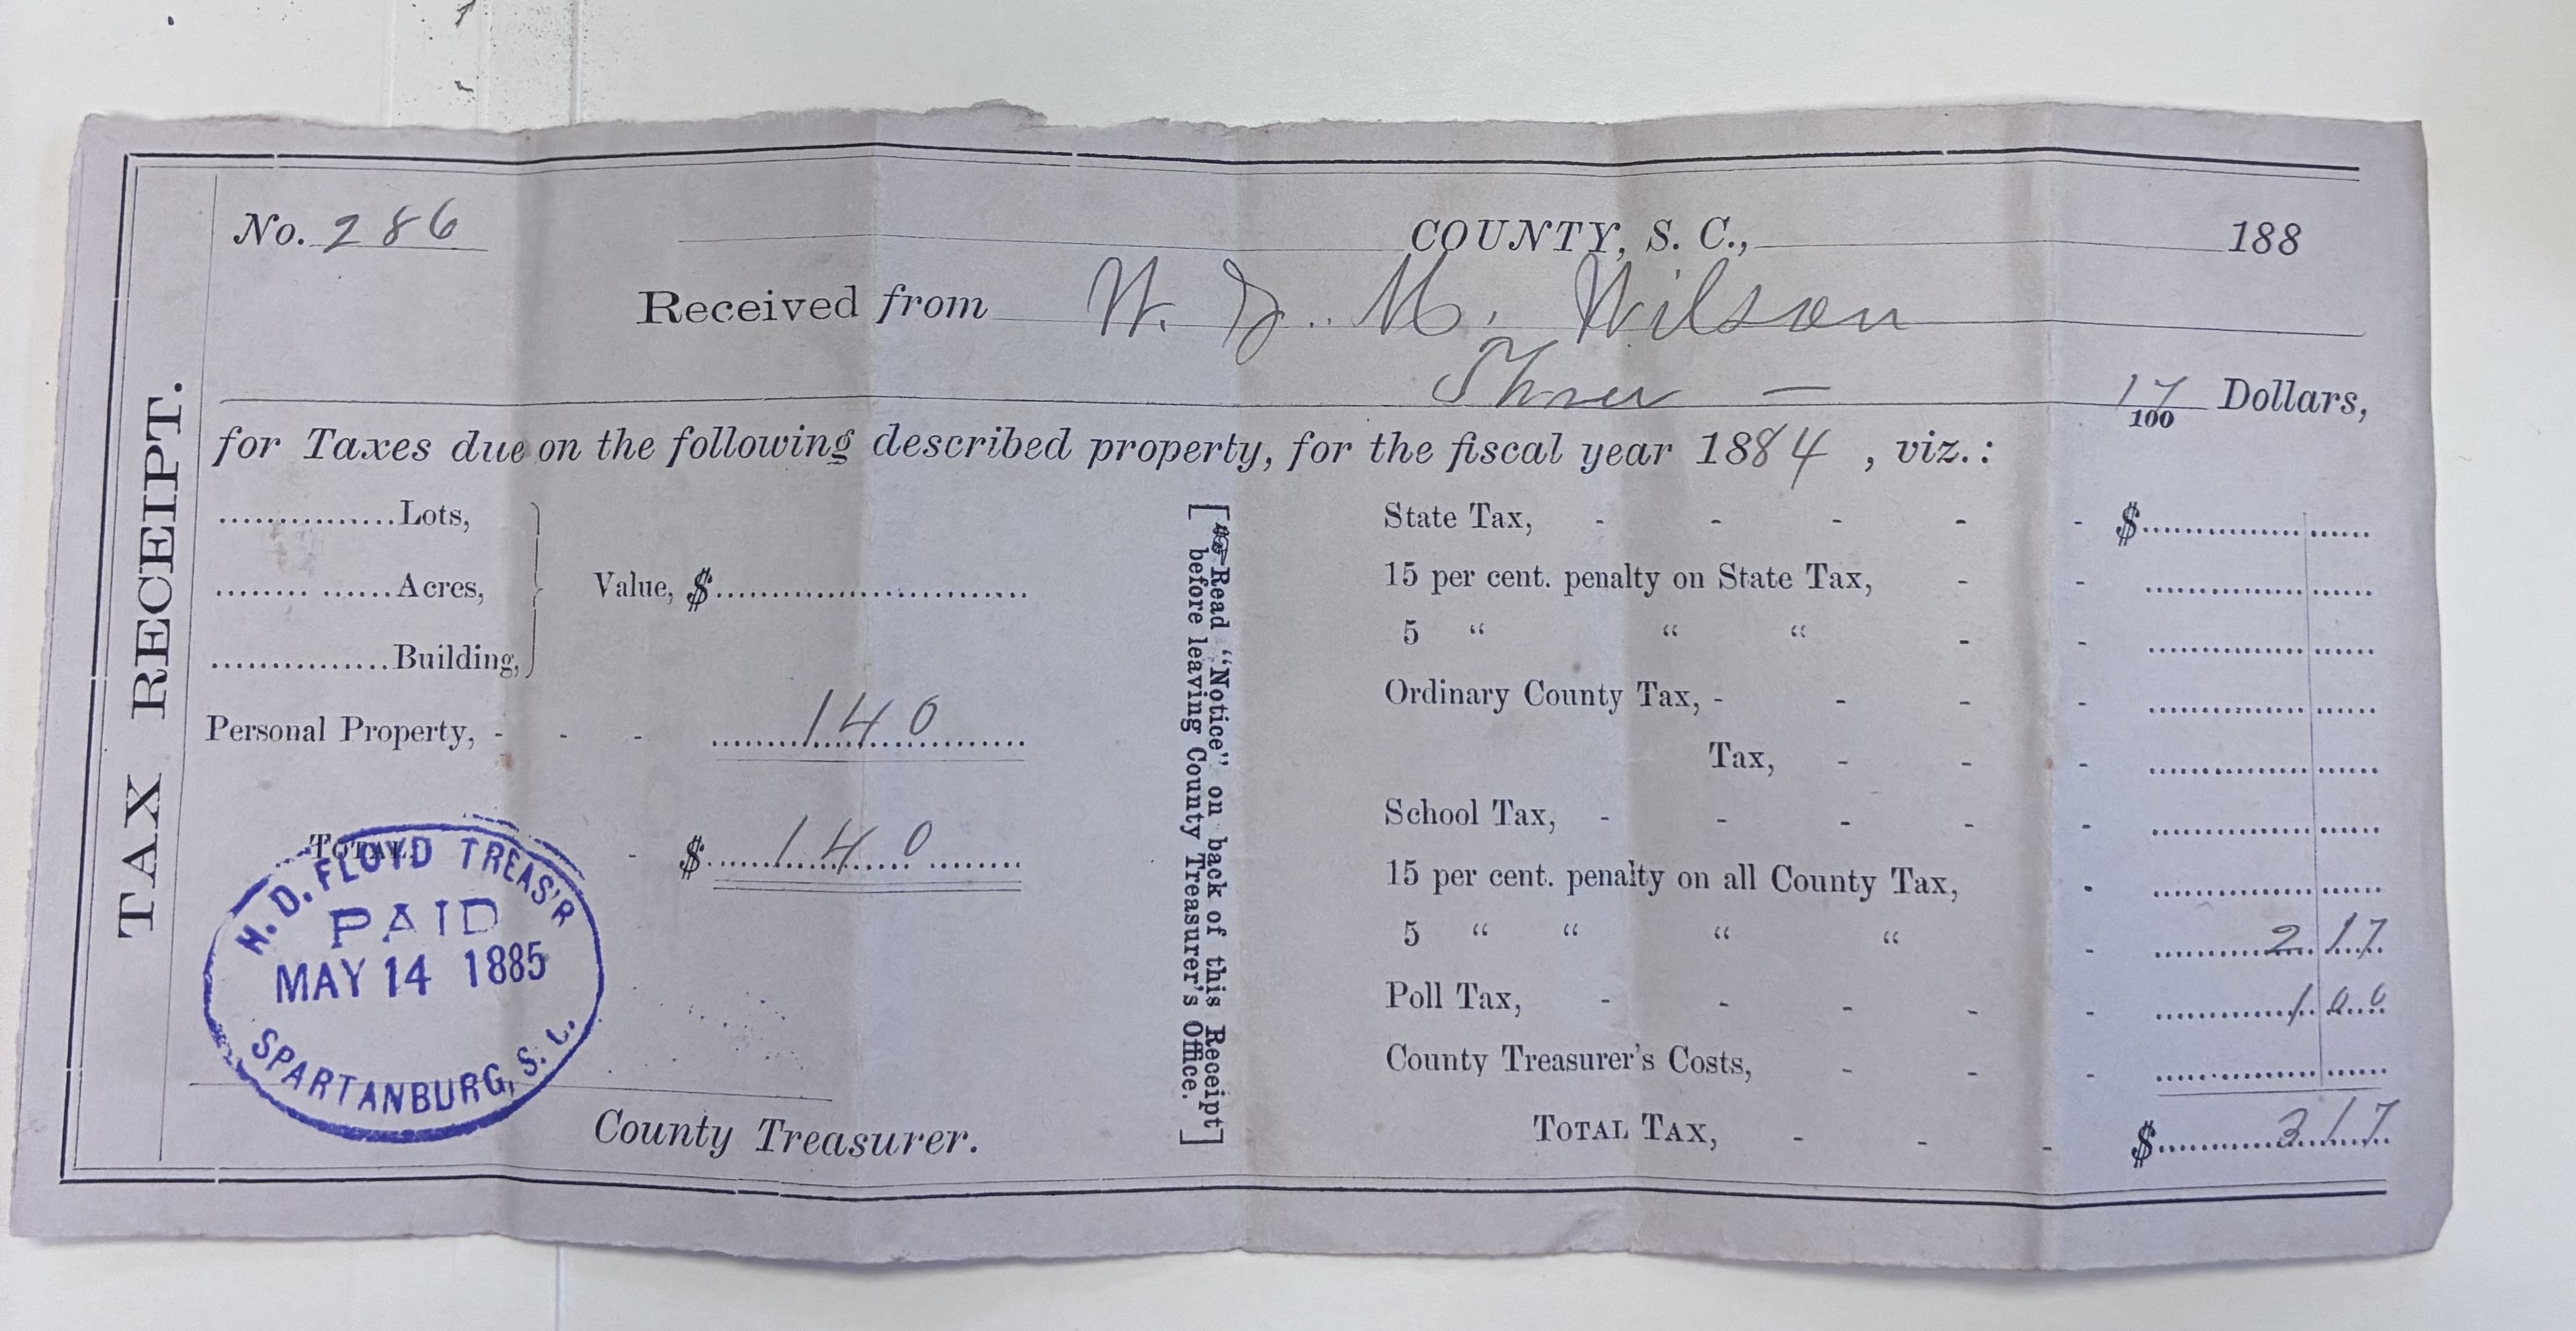 TAX RECEIPT.
No. 286 COUNTY, S. C., 188
Received from W. J. M. Wilson
Three — 17/100 Dollars,
for Taxes due on the following described property, for the fiscal year 1884, viz.:
Lots,
Acres,
Building,
Value, $
Personal Property, - - - 140
TOTAL - $ 140
H. D. FLOYD TREAS'R
PAID
MAY 14 1885
SPARTANBURG, S. C.
County Treasurer.
[☞ Read "Notice" on back of this Receipt
before leaving County Treasurer's Office.]
State Tax, - - - - - $
15 per cent. penalty on State Tax, - -
5 " " " - -
Ordinary County Tax, - - - -
Tax, - - -
School Tax, - - - - -
15 per cent. penalty on all County Tax, -
5 " " " " - 2 17
Poll Tax, - - - - - 1 00
County Treasurer's Costs, - - -
TOTAL TAX, - - - $ 3 17